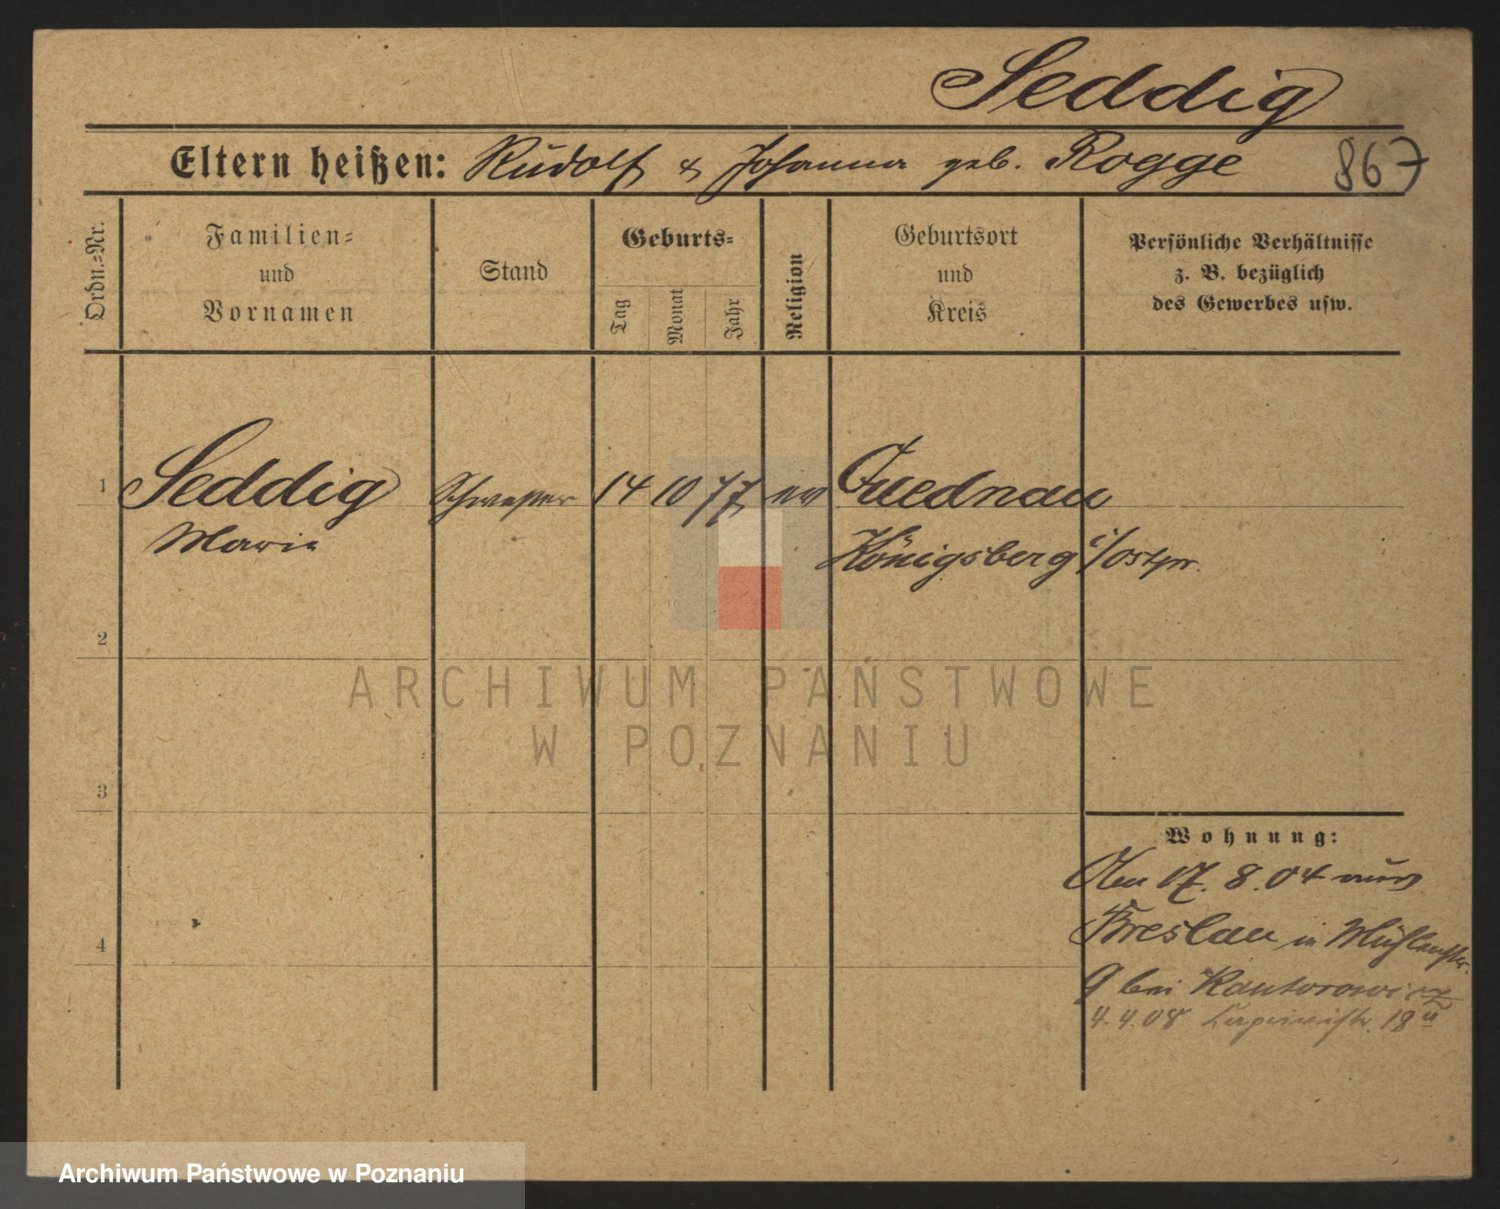 Seddig
Eltern heißen: Rudolf & Johanna geb. Rogge 867
Ordn.-Nr.
Familien-
und
Vornamen
Stand
Geburts-
Tag
Monat
Jahr
Religion
Geburtsort
und
Kreis
Persönliche Verhältnisse
z. B. bezüglich
des Gewerbes usw.
1 Seddig Schwester 14 10 77 ev Quednau
Marie Königsberg i/Ostpr.
2
3
4
Wohnung:
Den 17. 8. 04 aus
Breslau in Mühlenstr.
9 bei Kantorowicz
4. 4. 08 18
ARCHIWUM PAŃSTWOWE
W POZNANIU
Archiwum Państwowe w Poznaniu